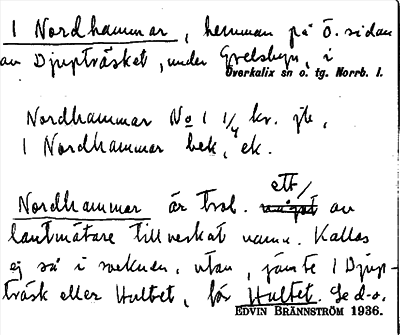 1 Nordhammar, hemman på Ö. sidan
av Djupträsket, under Grelsbyn, i
Överkalix sn o. tg. Norrb. l.
Nordhammar No 1 1/4 kr. jb,
1 Nordhammar bek, ek.
Nordhammar är trol. ett av
lantmätare tillverkat namn. Kallas
ej så i socknen, utan, jämte 1 Djup-
träsk eller Hultet, för Hultet. Se d.o.
EDVIN BRÄNNSTRÖM 1936.